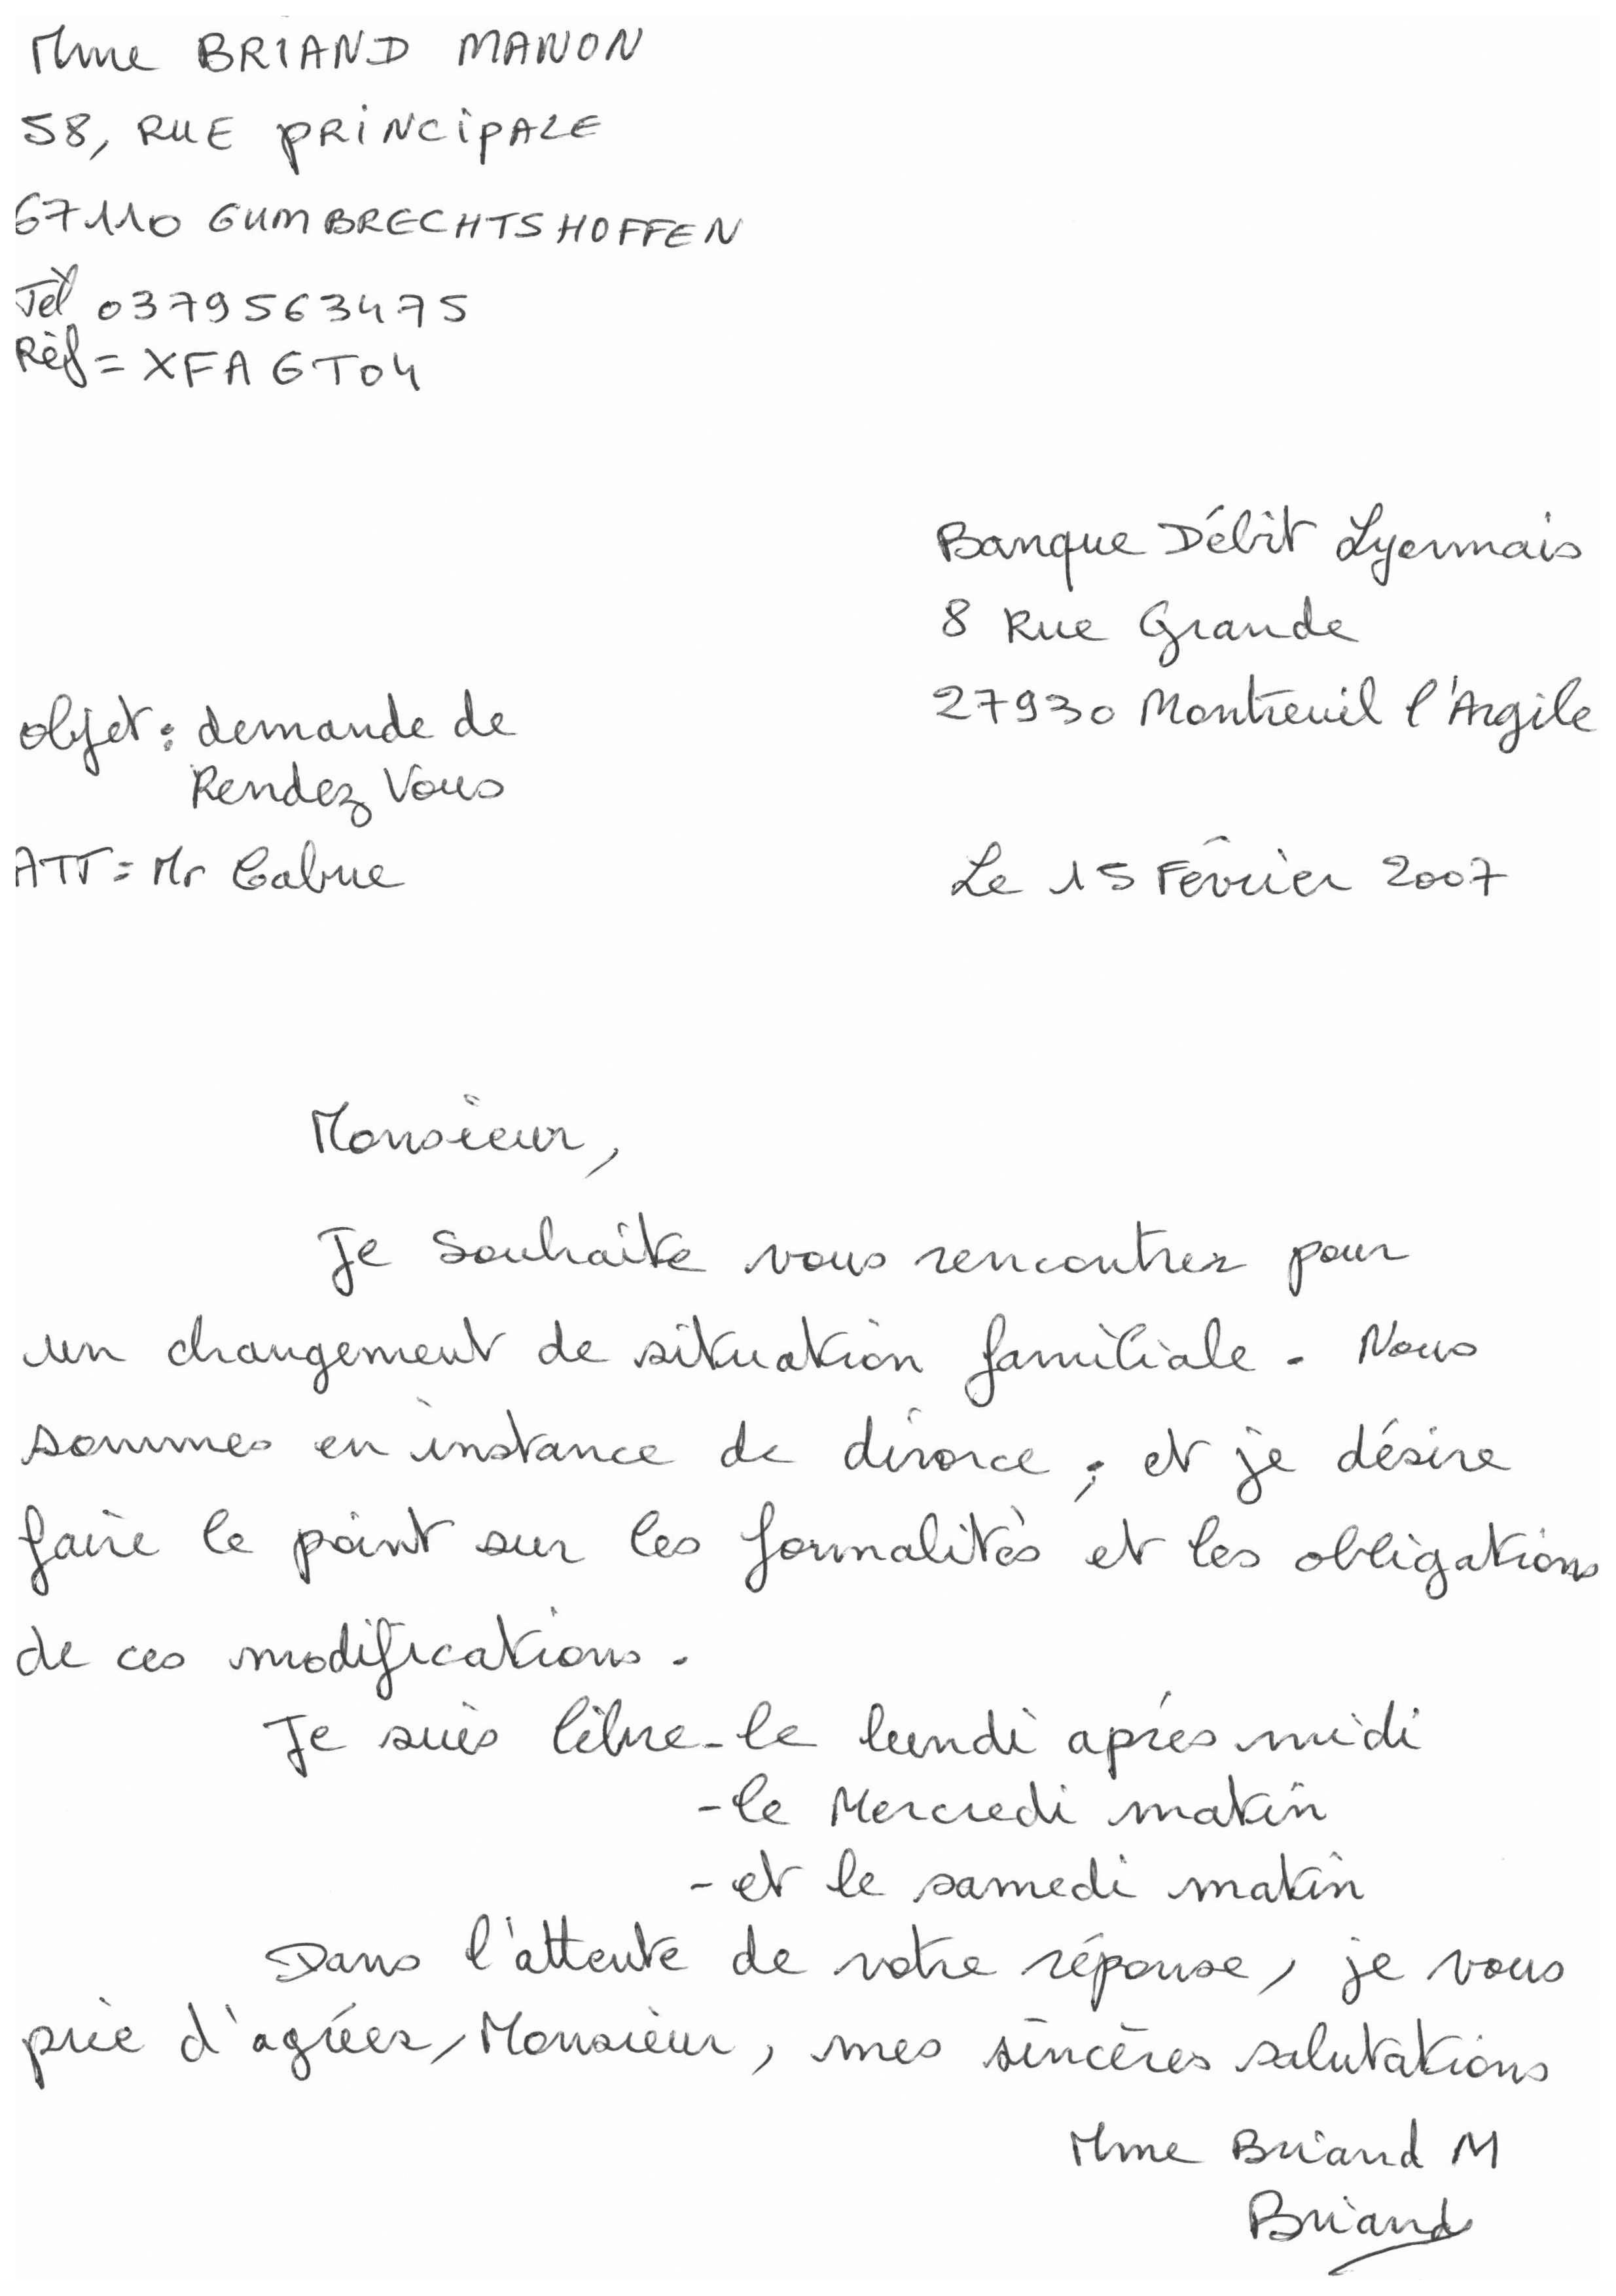 Mme BRIAND MANON
58, RUE PRINCIPALE
67110 GUMBRECHTSHOFFEN
Tél 0379563475
Réf = XFAGT04
Banque Débit Lyonnais
8 Rue Grande
27930 Montreuil l'Argile
objet : demande de
Rendez Vous
ATT = Mr Cabue
Le 15 Février 2007
Monsieur,
Je souhaite vous rencontrer pour
un changement de situation familiale. Nous
sommes en instance de divorce ; et je désire
faire le point sur les formalités et les obligations
de ces modifications.
Je suis libre - le lundi après midi
- le Mercredi matin
- et le samedi matin
Dans l'attente de votre réponse, je vous
prie d'agréer, Monsieur, mes sincères salutations
Mme Briand M
Briand